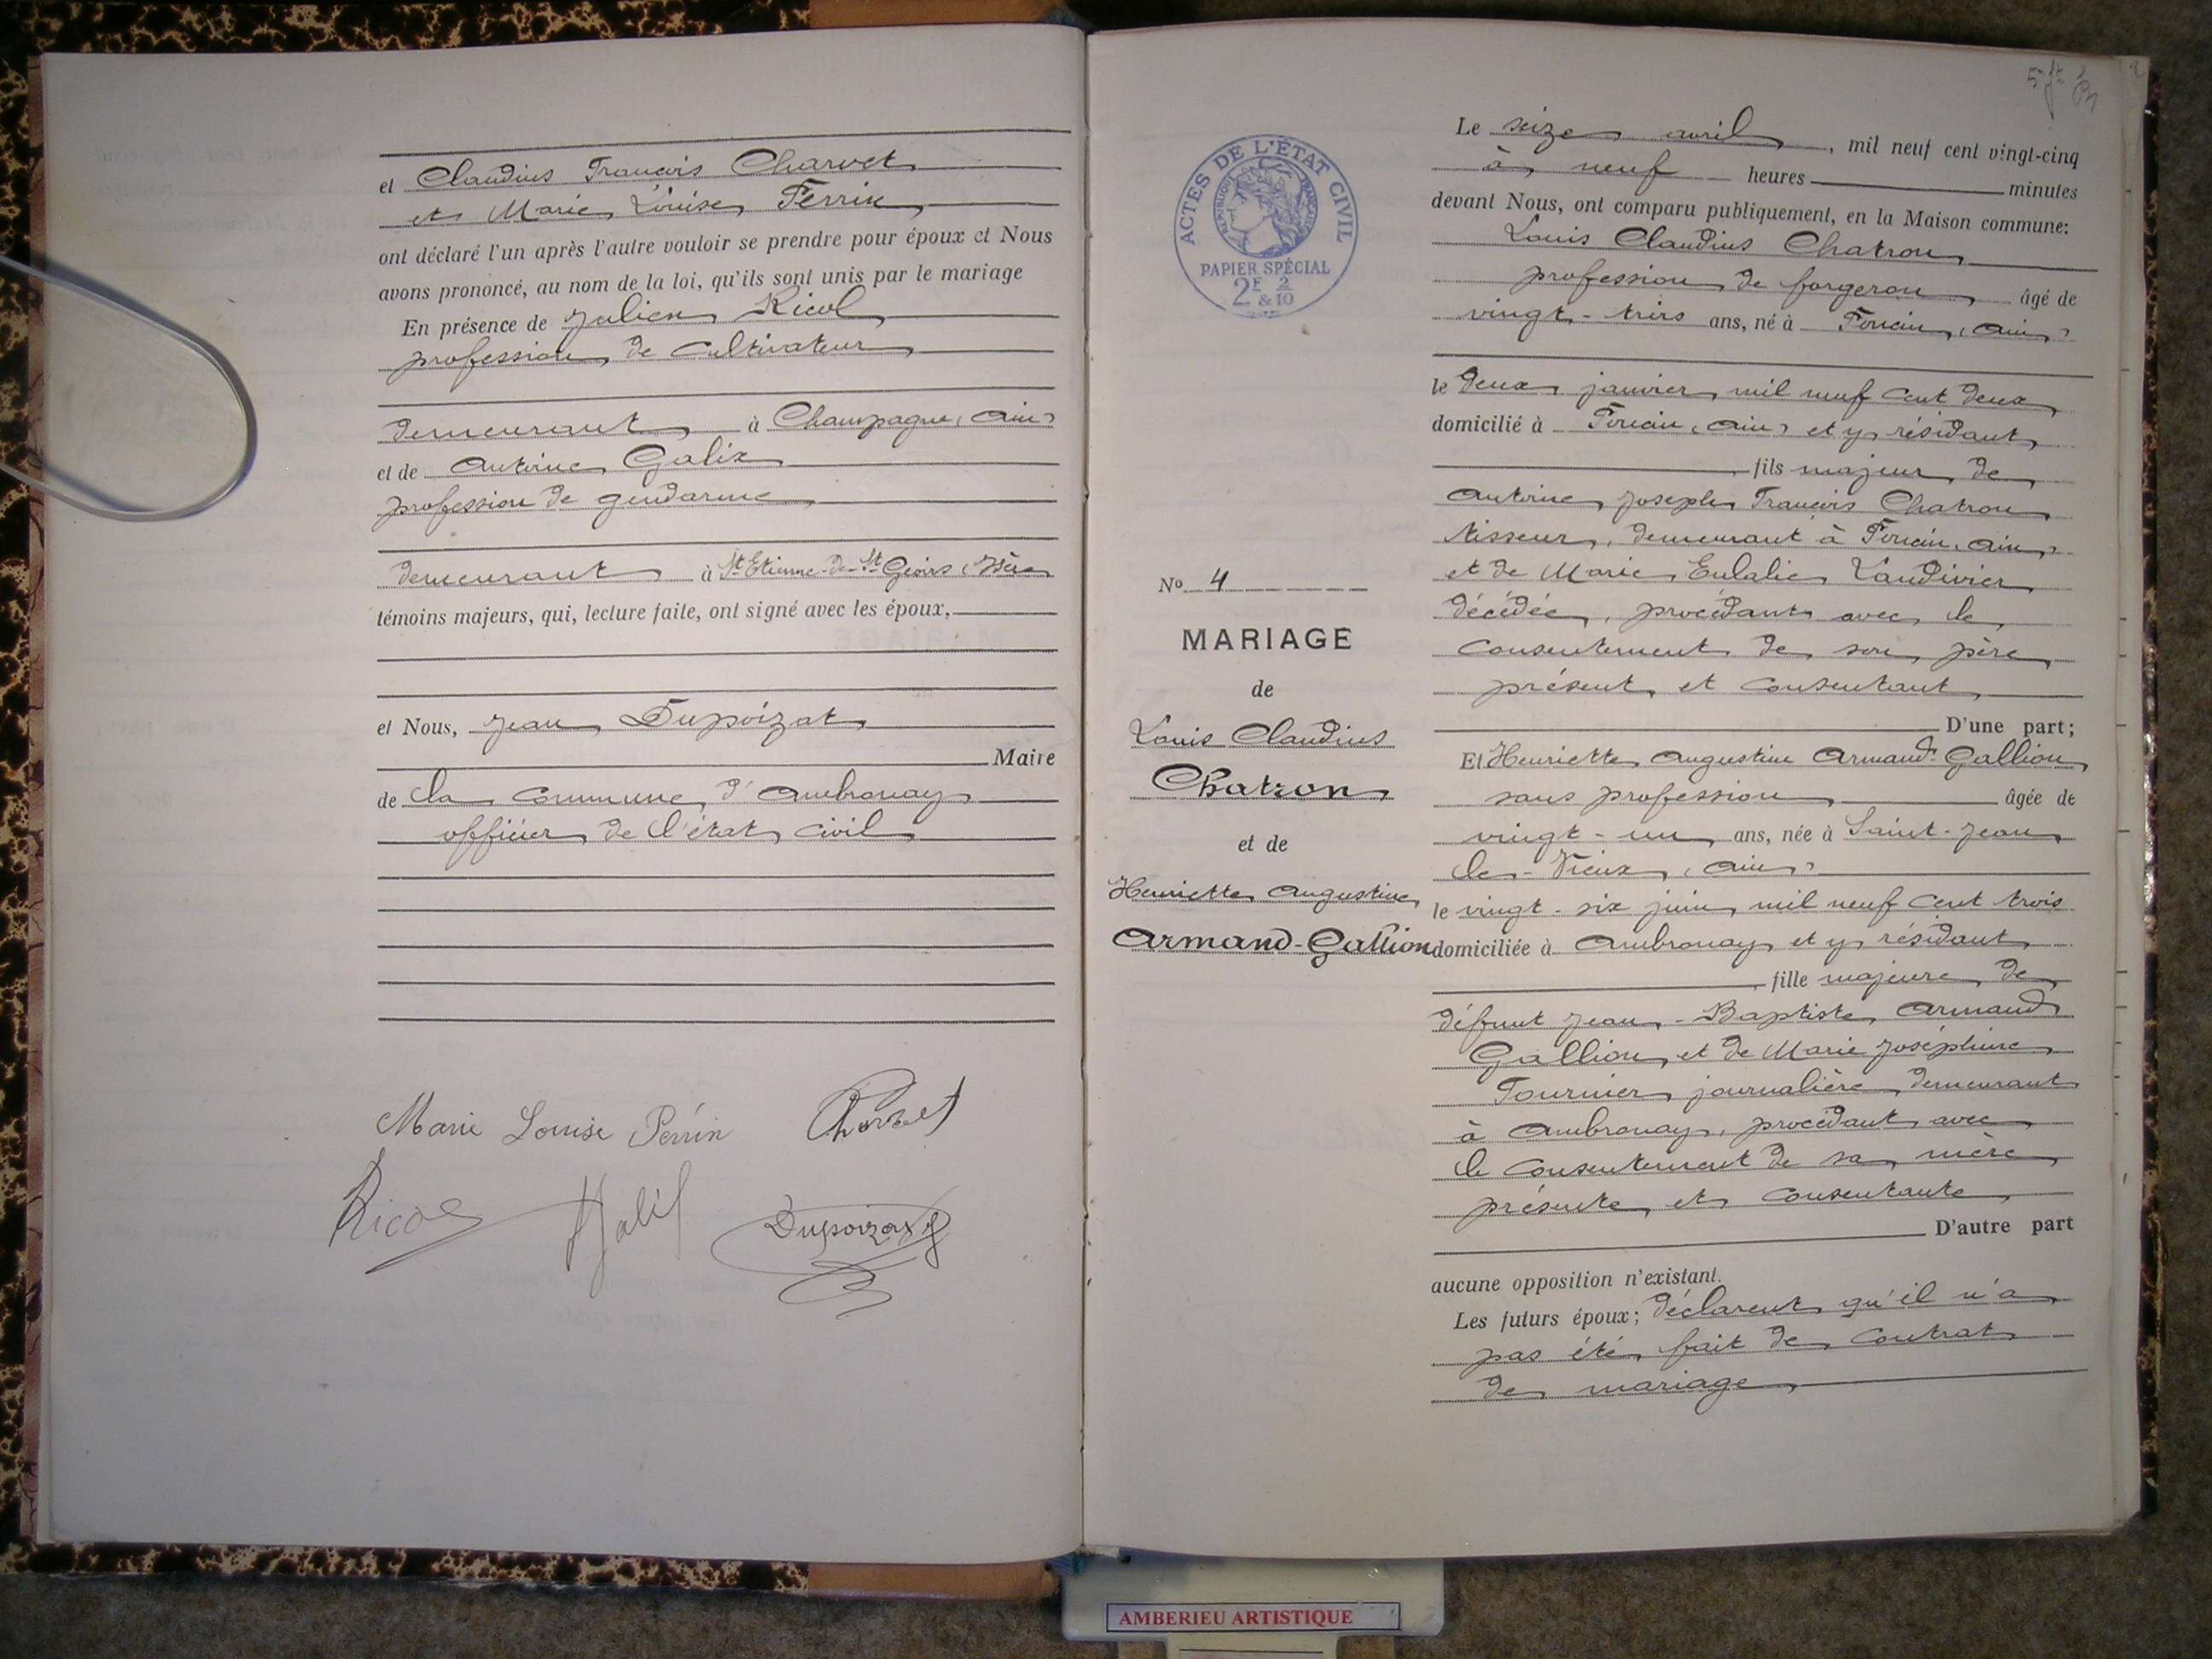 et Claudius François Charvet
et Marie Louise Perrin
ont déclaré l'un après l'autre vouloir se prendre pour époux et Nous
avons prononcé, au nom de la loi, qu'ils sont unis par le mariage
En présence de Julien Ricol
profession de cultivateur
demeurant à Champagne, Ain,
et de Antoine Galix
profession de gendarme
demeurant à St Etienne-de-St Geoirs (Isère
témoins majeurs, qui, lecture faite, ont signé avec les époux,
et Nous, Jean Dupoizat
Maire
de la commune d'Ambronay
officier de l'état civil
Marie Louise Perrin Charvet
Ricol Galix Dupoizat
ACTES DE L'ETAT CIVIL
REPUBLIQUE FRANÇAISE
PAPIER SPÉCIAL
2F & 2/10
No 4
MARIAGE
de
Louis Claudius
Chatron
et de
Henriette Augustine
Armand-Gallion
Le seize avril, mil neuf cent vingt-cinq
à neuf heures minutes
devant Nous, ont comparu publiquement, en la Maison commune:
Louis Claudius Chatron
profession de forgeron âgé de
vingt-trois ans, né à Poncin, Ain,
le deux janvier mil neuf cent deux
domicilié à Poncin, Ain, et y résidant
fils majeur de
Antoine Joseph François Chatron
tisseur, demeurant à Poncin, Ain,
et de Marie Eulalie Vaudivier
décédée, procédant avec le
consentement de son père
présent et consentant
D'une part;
Et Henriette Augustine Armand-Gallion
sans profession âgée de
vingt-un ans, née à Saint-Jean
le-Vieux, Ain,
le vingt-six juin mil neuf cent trois
domiciliée à Ambronay et y résidant
fille majeure de
défunt Jean-Baptiste Armand
Gallion et de Marie Joséphine
Fournier journalière demeurant
à Ambronay, procédant avec
le consentement de sa mère
présente et consentante
D'autre part
aucune opposition n'existant.
Les futurs époux; déclarent qu'il n'a
pas été fait de contrat
de mariage
AMBERIEU ARTISTIQUE